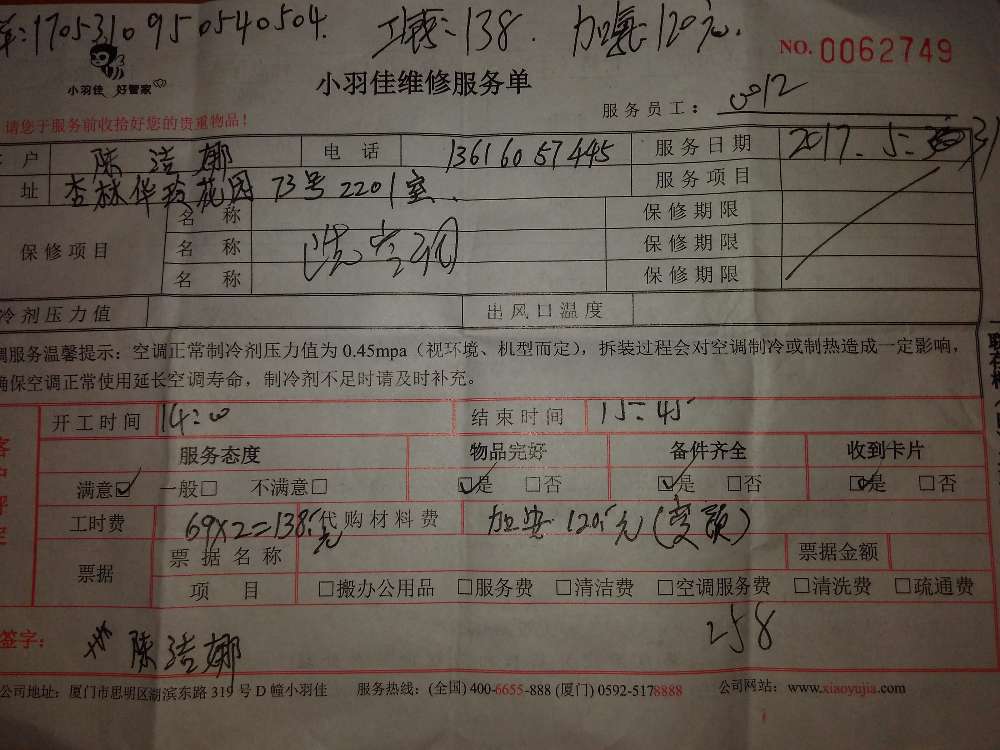 单:1705310950540504. 工费:138. 加氟:120元.
小羽佳 好管家
小羽佳维修服务单
NO. 0062749
服务员工: 0012
请您于服务前收拾好您的贵重物品!
户 陈洁娜 电话 13616057445 服务日期 2017.5.31
址 杏林华玲花园73号2201室. 服务项目
保修项目 名称 保修期限
名称 洗空调 保修期限
名称 保修期限
冷剂压力值 出风口温度
调服务温馨提示:空调正常制冷剂压力值为 0.45mpa(视环境、机型而定),拆装过程会对空调制冷或制热造成一定影响,
确保空调正常使用延长空调寿命,制冷剂不足时请及时补充。
开工时间 14:00 结束时间 15:45
服务态度 物品完好 备件齐全 收到卡片
满意☑ 一般□ 不满意□ ☑是 □否 ☑是 □否 ☑是 □否
工时费 69×2=138元 代购材料费 120元
票据 票据名称 票据金额
项目 □搬办公用品 □服务费 □清洁费 □空调服务费 □清洗费 □疏通费
258
签字: 陈洁娜
公司地址:厦门市思明区湖滨东路 319 号 D 幢小羽佳 服务热线:(全国) 400-6655-888 (厦门) 0592-5178888 公司网站:www.xiaoyujia.com